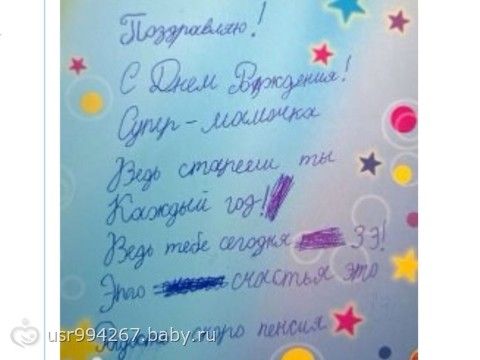 Поздравляю!
С Днем Рождения!
Супер-мамочка
Ведь стареешь ты
Каждый год!
Ведь тебе сегодня 39!
Это счастья это
скоро пенсия
usr994267.baby.ru